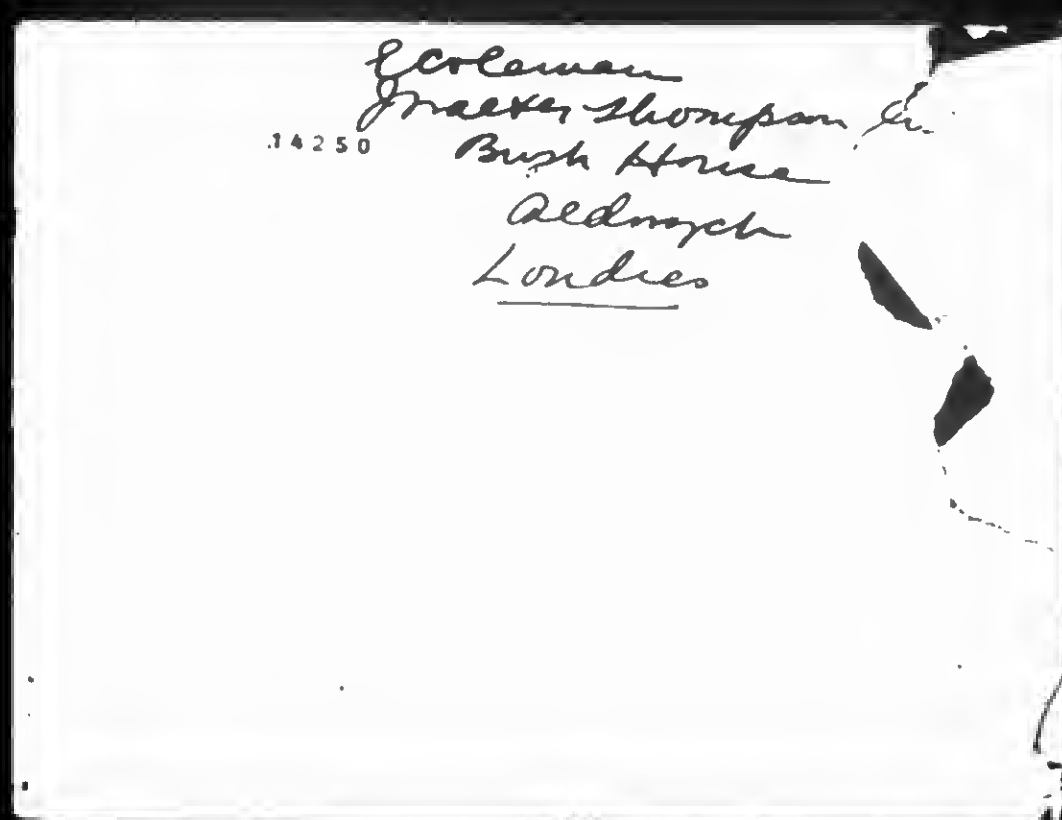 E Coleman
J Walter Thompson Co.
14250
Bush House
Aldwych
Londres